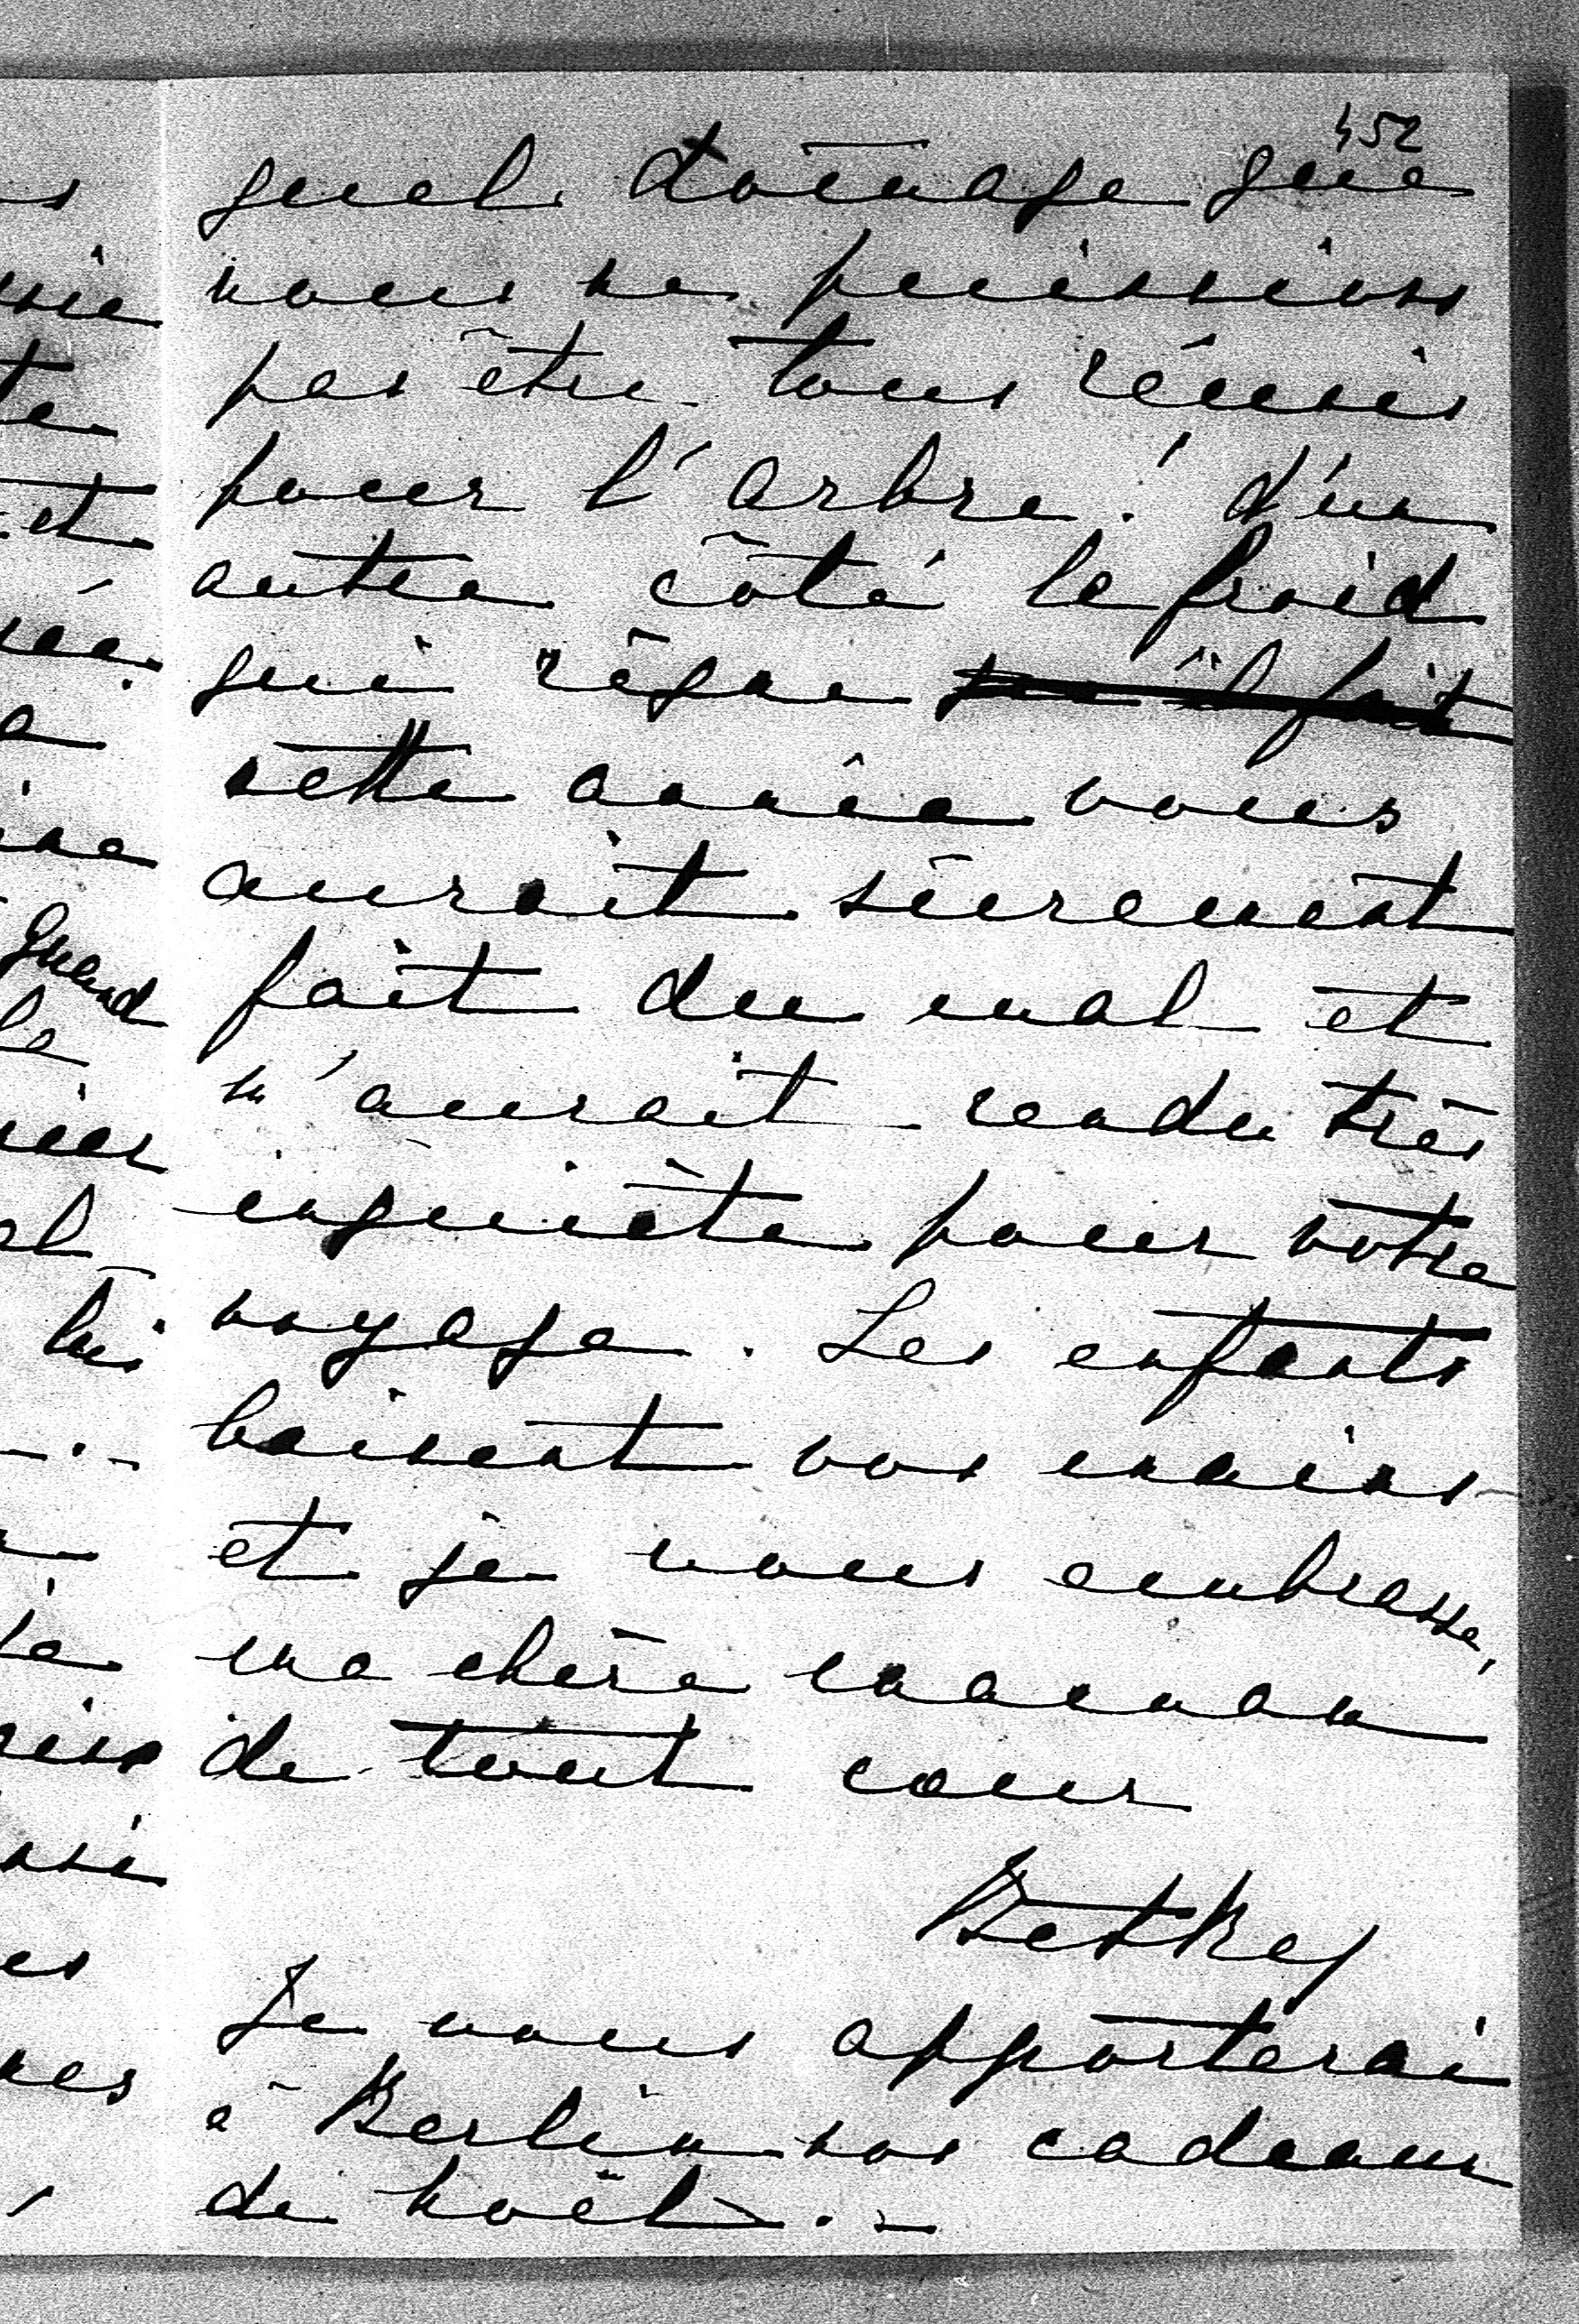 452
quel domage que
nous ne puissions
pas être tous réunis
pour l'arbre! d'un
autre côté le froid
qui règne
cette année vous
aurait sûrement
fait du mal et
m'aurait rendu très
inquiète pour votre
voyage. Les enfants
baisent vos mains
et je vous embrasse,
ma chère maman
de tout cœur
Betka
Je vous apporterai
à Berlin nos cadeaux
de Noël.-